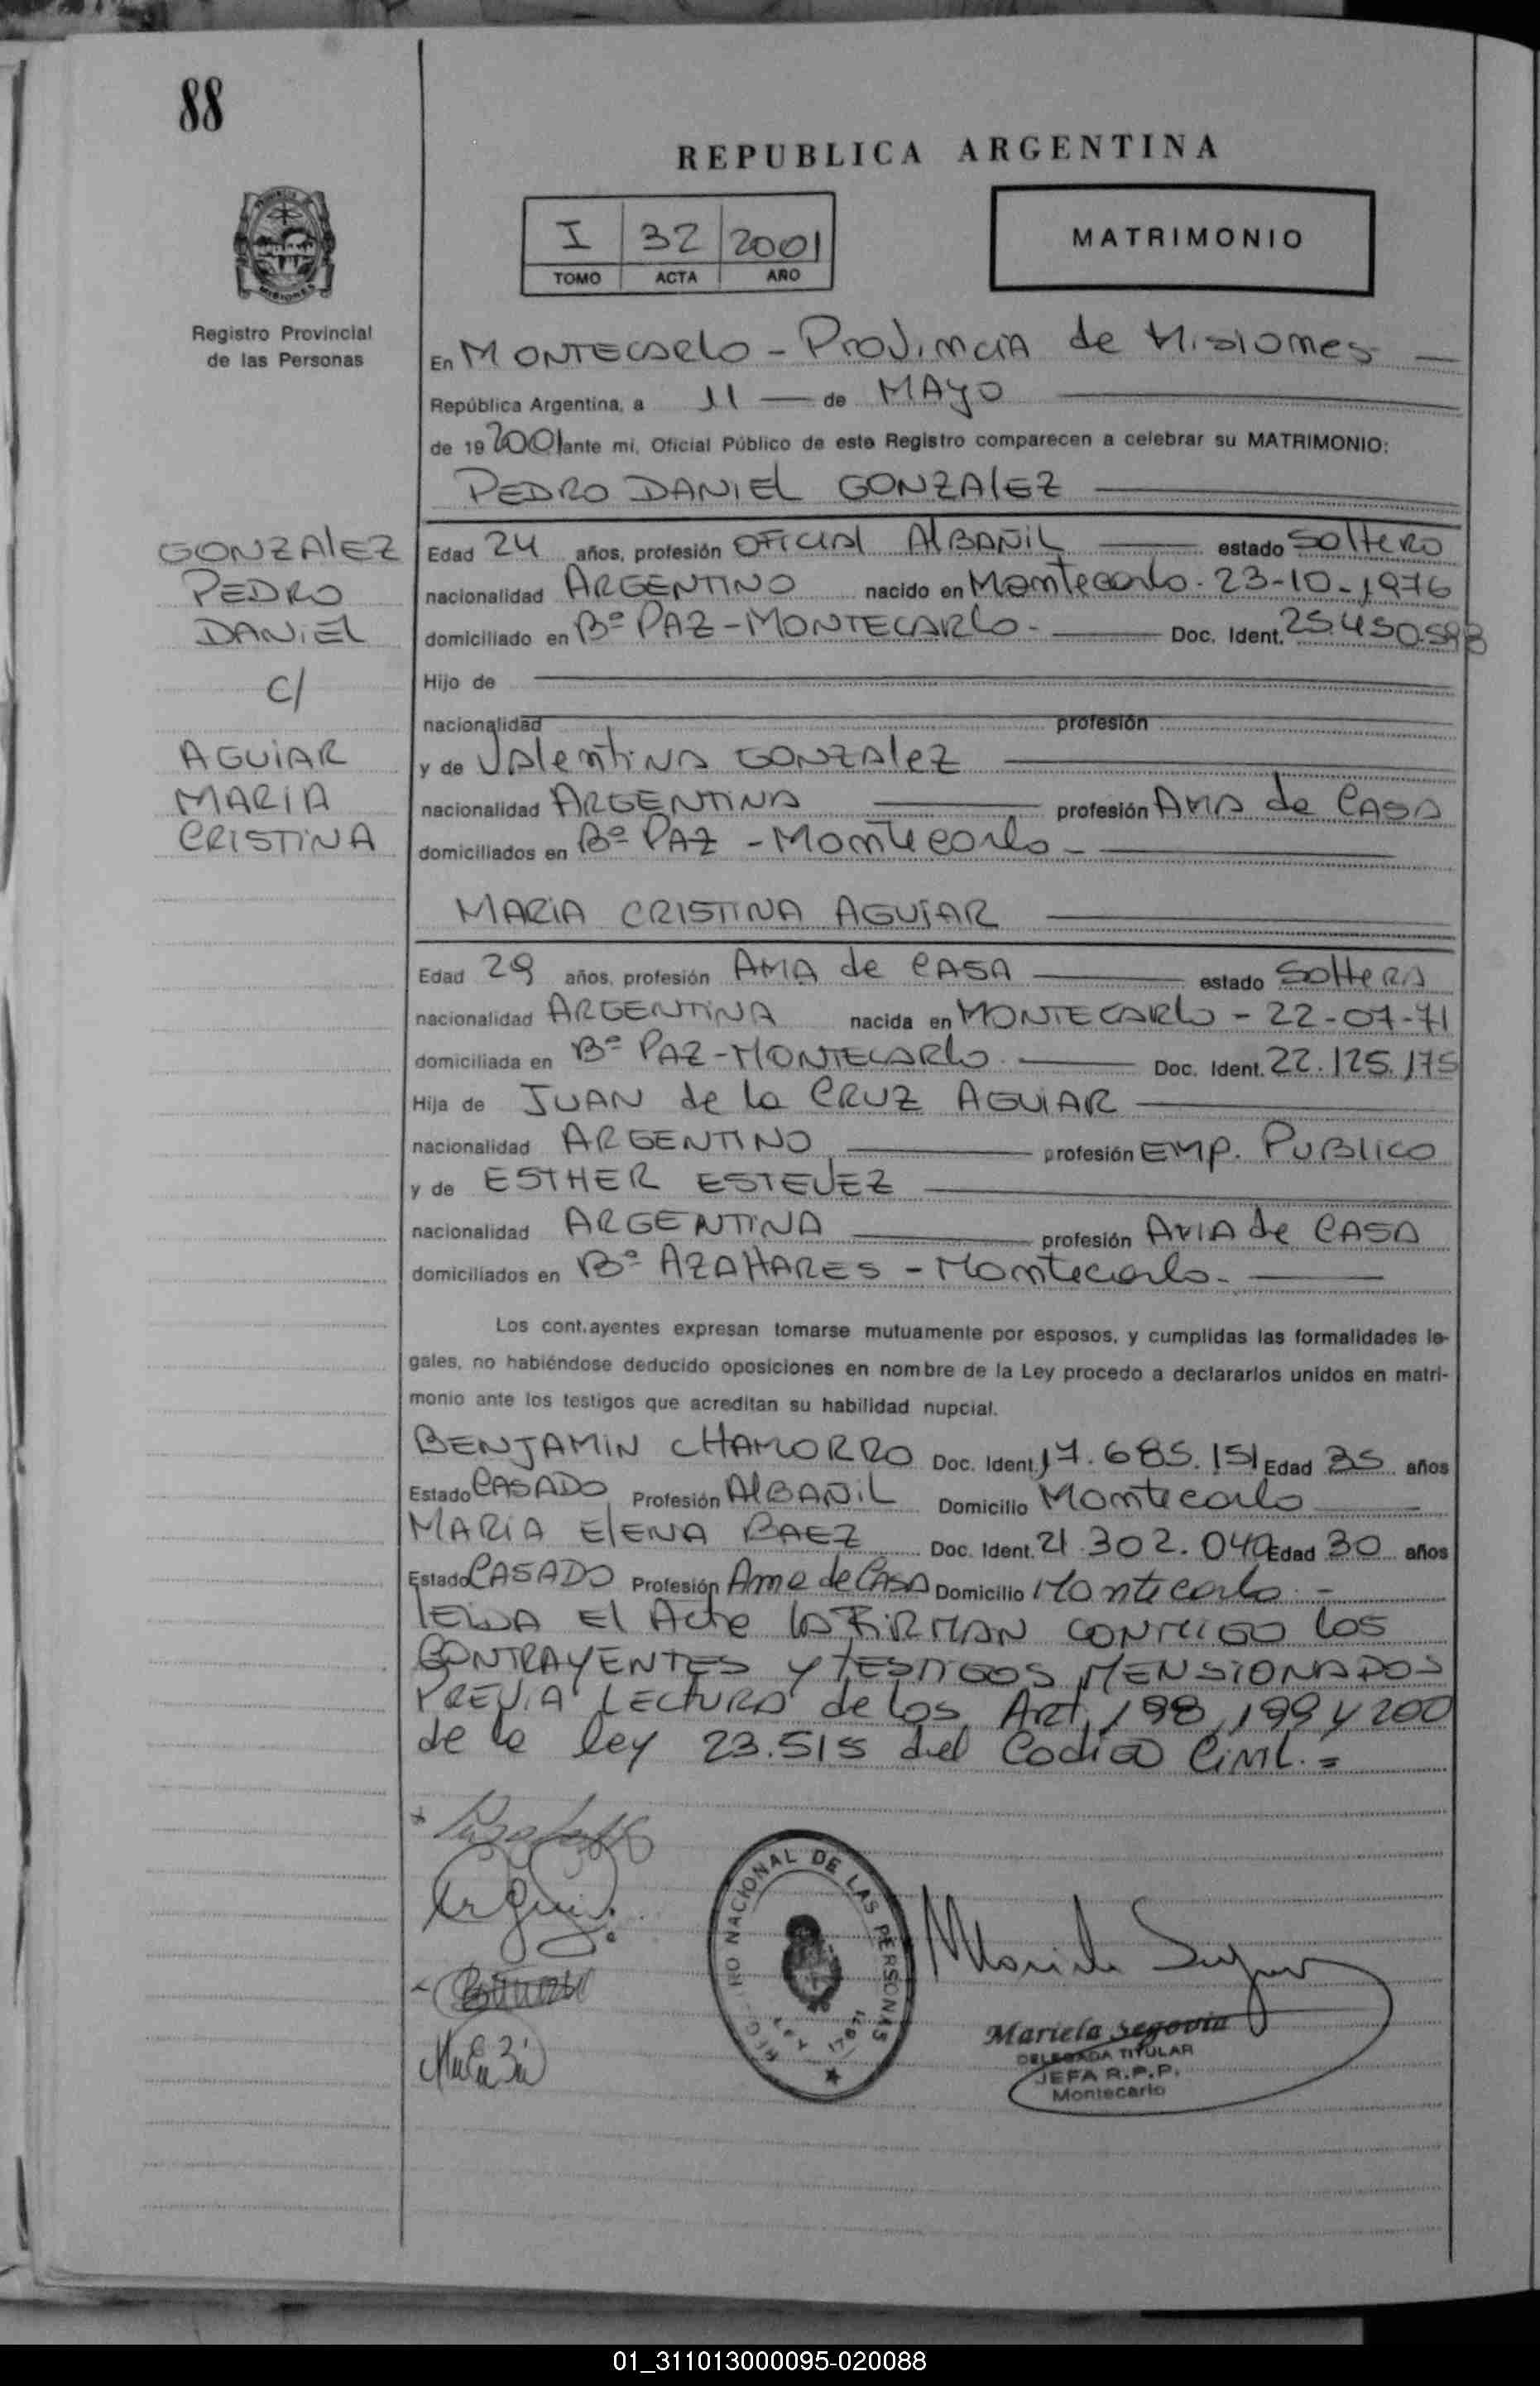 88
REPUBLICA ARGENTINA
I 32 2001
TOMO ACTA AÑO
MATRIMONIO
PROVINCIA DE
MISIONES
Registro Provincial
de las Personas
En MONTECARLO - PROVINCIA de Misiones
República Argentina, a 11 de MAYO
de 19 2001 ante mi, Oficial Público de este Registro comparecen a celebrar su MATRIMONIO:
PEDRO DANIEL GONZALEZ
GONZALEZ
PEDRO
DANIEL
C/
AGUIAR
MARIA
CRISTINA
Edad 24 años, profesión OFICIAL ALBAÑIL estado SOLTERO
nacionalidad ARGENTINO nacido en Montecarlo - 23-10-1976
domiciliado en Bº PAZ - MONTECARLO - Doc. Ident. 25.450.598
Hijo de
nacionalidad profesión
y de VALENTINA GONZALEZ
nacionalidad ARGENTINA profesión AMA de CASA
domiciliados en Bº PAZ - Montecarlo -
MARIA CRISTINA AGUIAR
Edad 29 años, profesión AMA de CASA estado SOLTERA
nacionalidad ARGENTINA nacida en MONTECARLO - 22-07-71
domiciliada en Bº PAZ - MONTECARLO. Doc. Ident. 22.125.175
Hija de JUAN de la CRUZ AGUIAR
nacionalidad ARGENTINO profesión EMP. PUBLICO
y de ESTHER ESTEVEZ
nacionalidad ARGENTINA profesión AMA de CASA
domiciliados en Bº AZAHARES - Montecarlo -
Los cont.ayentes expresan tomarse mutuamente por esposos, y cumplidas las formalidades le-
gales, no habiéndose deducido oposiciones en nombre de la Ley procedo a declararlos unidos en matri-
monio ante los testigos que acreditan su habilidad nupcial.
BENJAMIN CHAMORRO Doc. Ident. 17.685.151 Edad 35 años
Estado CASADO Profesión ALBAÑIL Domicilio Montecarlo
MARIA ELENA BAEZ Doc. Ident. 21.302.040 Edad 30 años
Estado CASADO Profesión Ama de CASA Domicilio Montecarlo -
LEIDA El Acta LA FIRMAN CONMIGO LOS
CONTRAYENTES y TESTIGOS MENSIONADOS
PREVIA LECTURA de los Art. 198, 199 y 200
de la ley 23.515 del Codigo Civil. =
REGISTRO NACIONAL DE LAS PERSONAS
Mariela Segovia
DELEGADA TITULAR
JEFA R.P.P.
Montecarlo
01_311013000095-020088